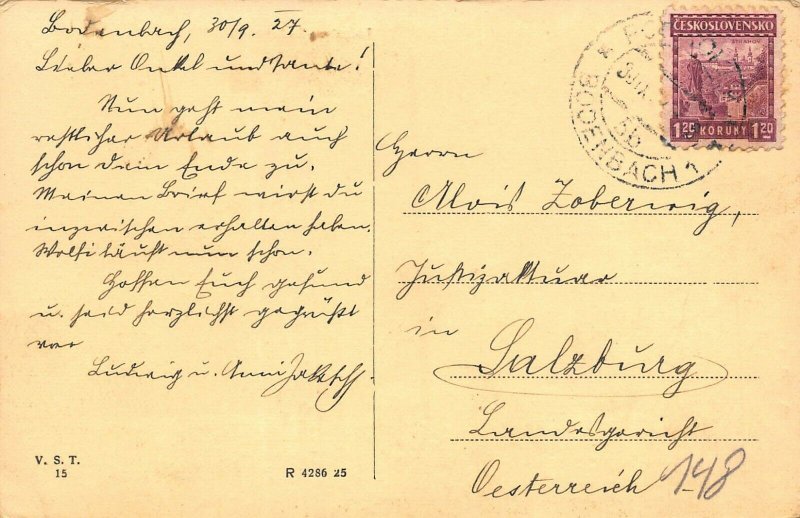 Bodenbach, 30/9. 27.
Lieber Onkel und Tante!
Nun geht mein
restlicher Urlaub auch
schon dem Ende zu.
Meinen Brief wirst du
inzwischen erhalten haben.
Wolfi läuft nun schon.
Hoffen Euch gesund
u. seid herzlichst gegrüßt
von
Ludwig u. Anni
V. S. T.
15
R 4286 25
ČESKOSLOVENSKO
STRAHOV
1.20 KORUNY 1.20
BODENBACH 1
Herrn
Alois Zoberwig,
Justizaktuar
in
Salzburg
Landesgericht
Oesterreich 148